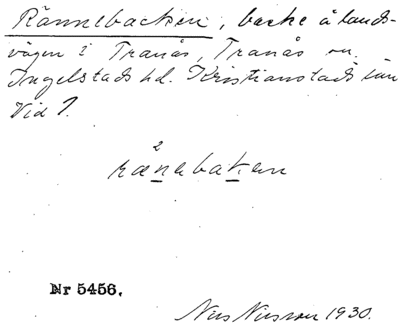 Rännebacken, backe å lands-
vägen i Tranås, Tranås sn.
Ingelstads hd. Kristianstads län
Vid 7.
2
rænabakan
Nr 5456.
Nils Nilsson 1930.